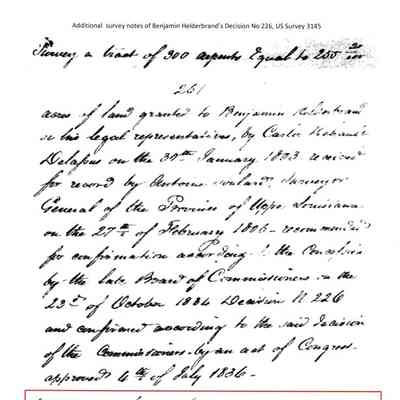 Additional survey notes of Benjamin Helderbrand's Decision No 226, US Survey 3145
Survey a tract of 300 arpents Equal to 255
261
acres of land granted to Benjamin
or his legal representatives, by Carlos
Delassus on the 30th January 1803 received
for record by Antoine Soulard, Surveyor
General of the Province of Upper Louisiana
on the 27th of February 1806 - recommended
for confirmation according to the
by the late Board of Commissioners on the
22d of October 1834 Decision N. 226
and confirmed according to the said decision
of the Commissioners by an act of Congress
approved 4th of July 1836 -